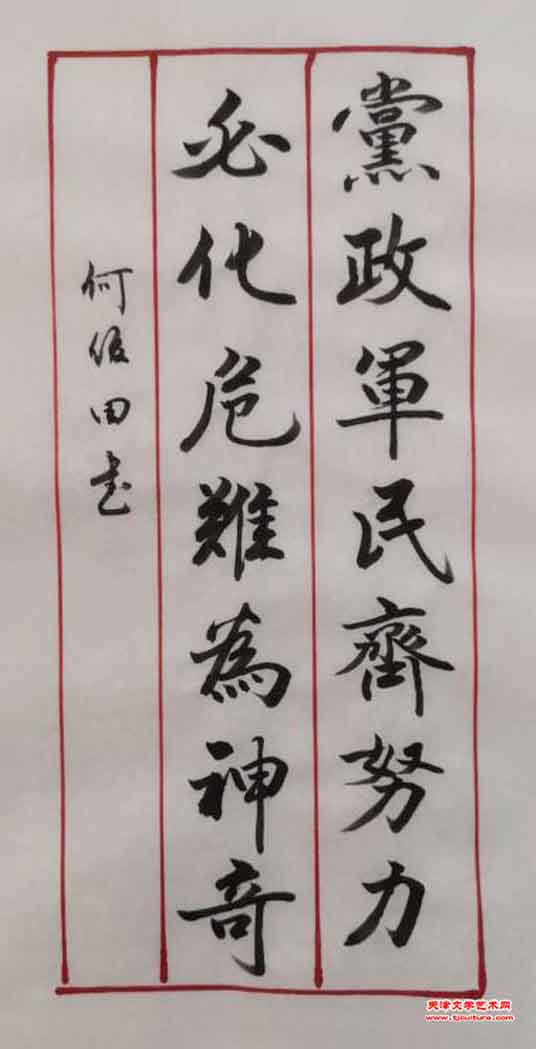 黨政軍民齊努力
必化危難為神奇
何俊田书
天津文学艺术网
www.tjculture.com